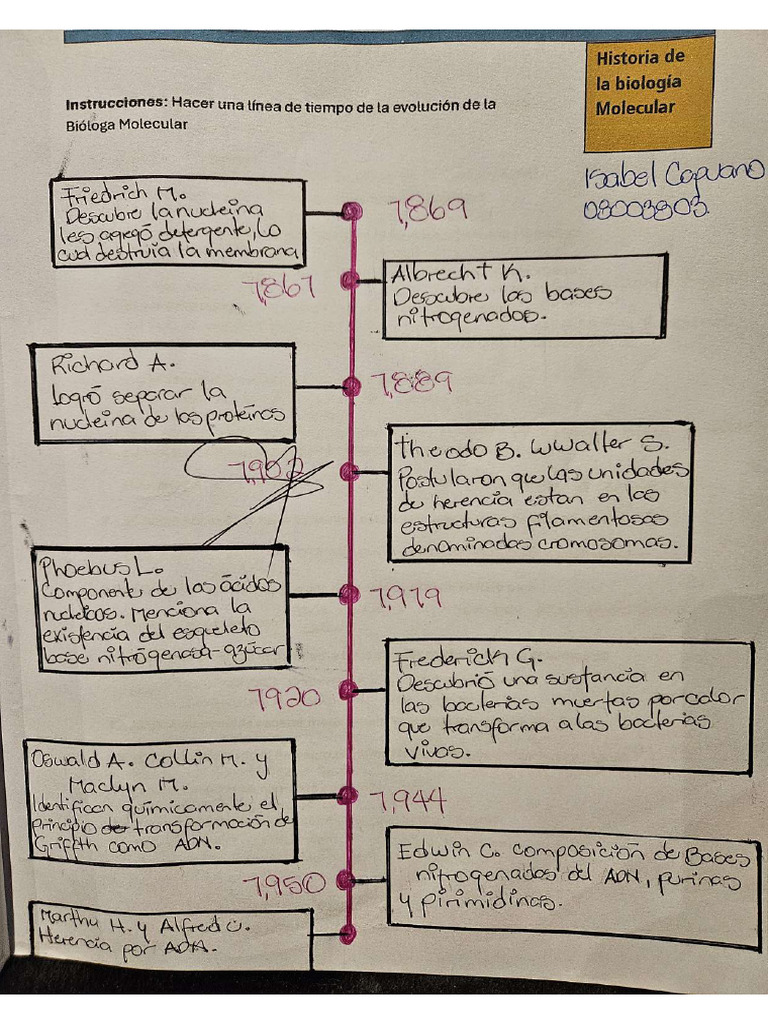 Historia de
la biología
Molecular
Instrucciones: Hacer una línea de tiempo de la evolución de la
Bióloga Molecular
Isabel Capuano
08003803.
Friedrich M.
Descubre la nucleina
les agegó detergente, lo
cual destruia la membrana
1,869
1,867
Albrecht K.
Descubre las bases
nitrogenadas.
Richard A.
logró separar la
nucleina de las proteínas
1,889
1,902
theodo B. W Walter S.
Postularon que las unidades
de herencia estan en las
estructuras filamentosas
denominadas cromosomas.
Phoebus L.
Componente de los ácidos
nucleicos. Menciona la
existencia del esqueleto
base nitrógenosa-azúcar
1,919
1920
Frederick G.
Descubrió una sustancia en
las bacterias muertas por calor
que transforma a las bacterias
vivas.
Oswald A. Collin M. y
Maclyn M.
Identifican químicamente el
principio de transformación de
Griffth como ADN.
1,944
1,950
Edwin C. composición de Bases
nitrogenadas del ADN, purinas
y pirimidinas.
Marthu H. y Alfred C.
Herencia por ADN.